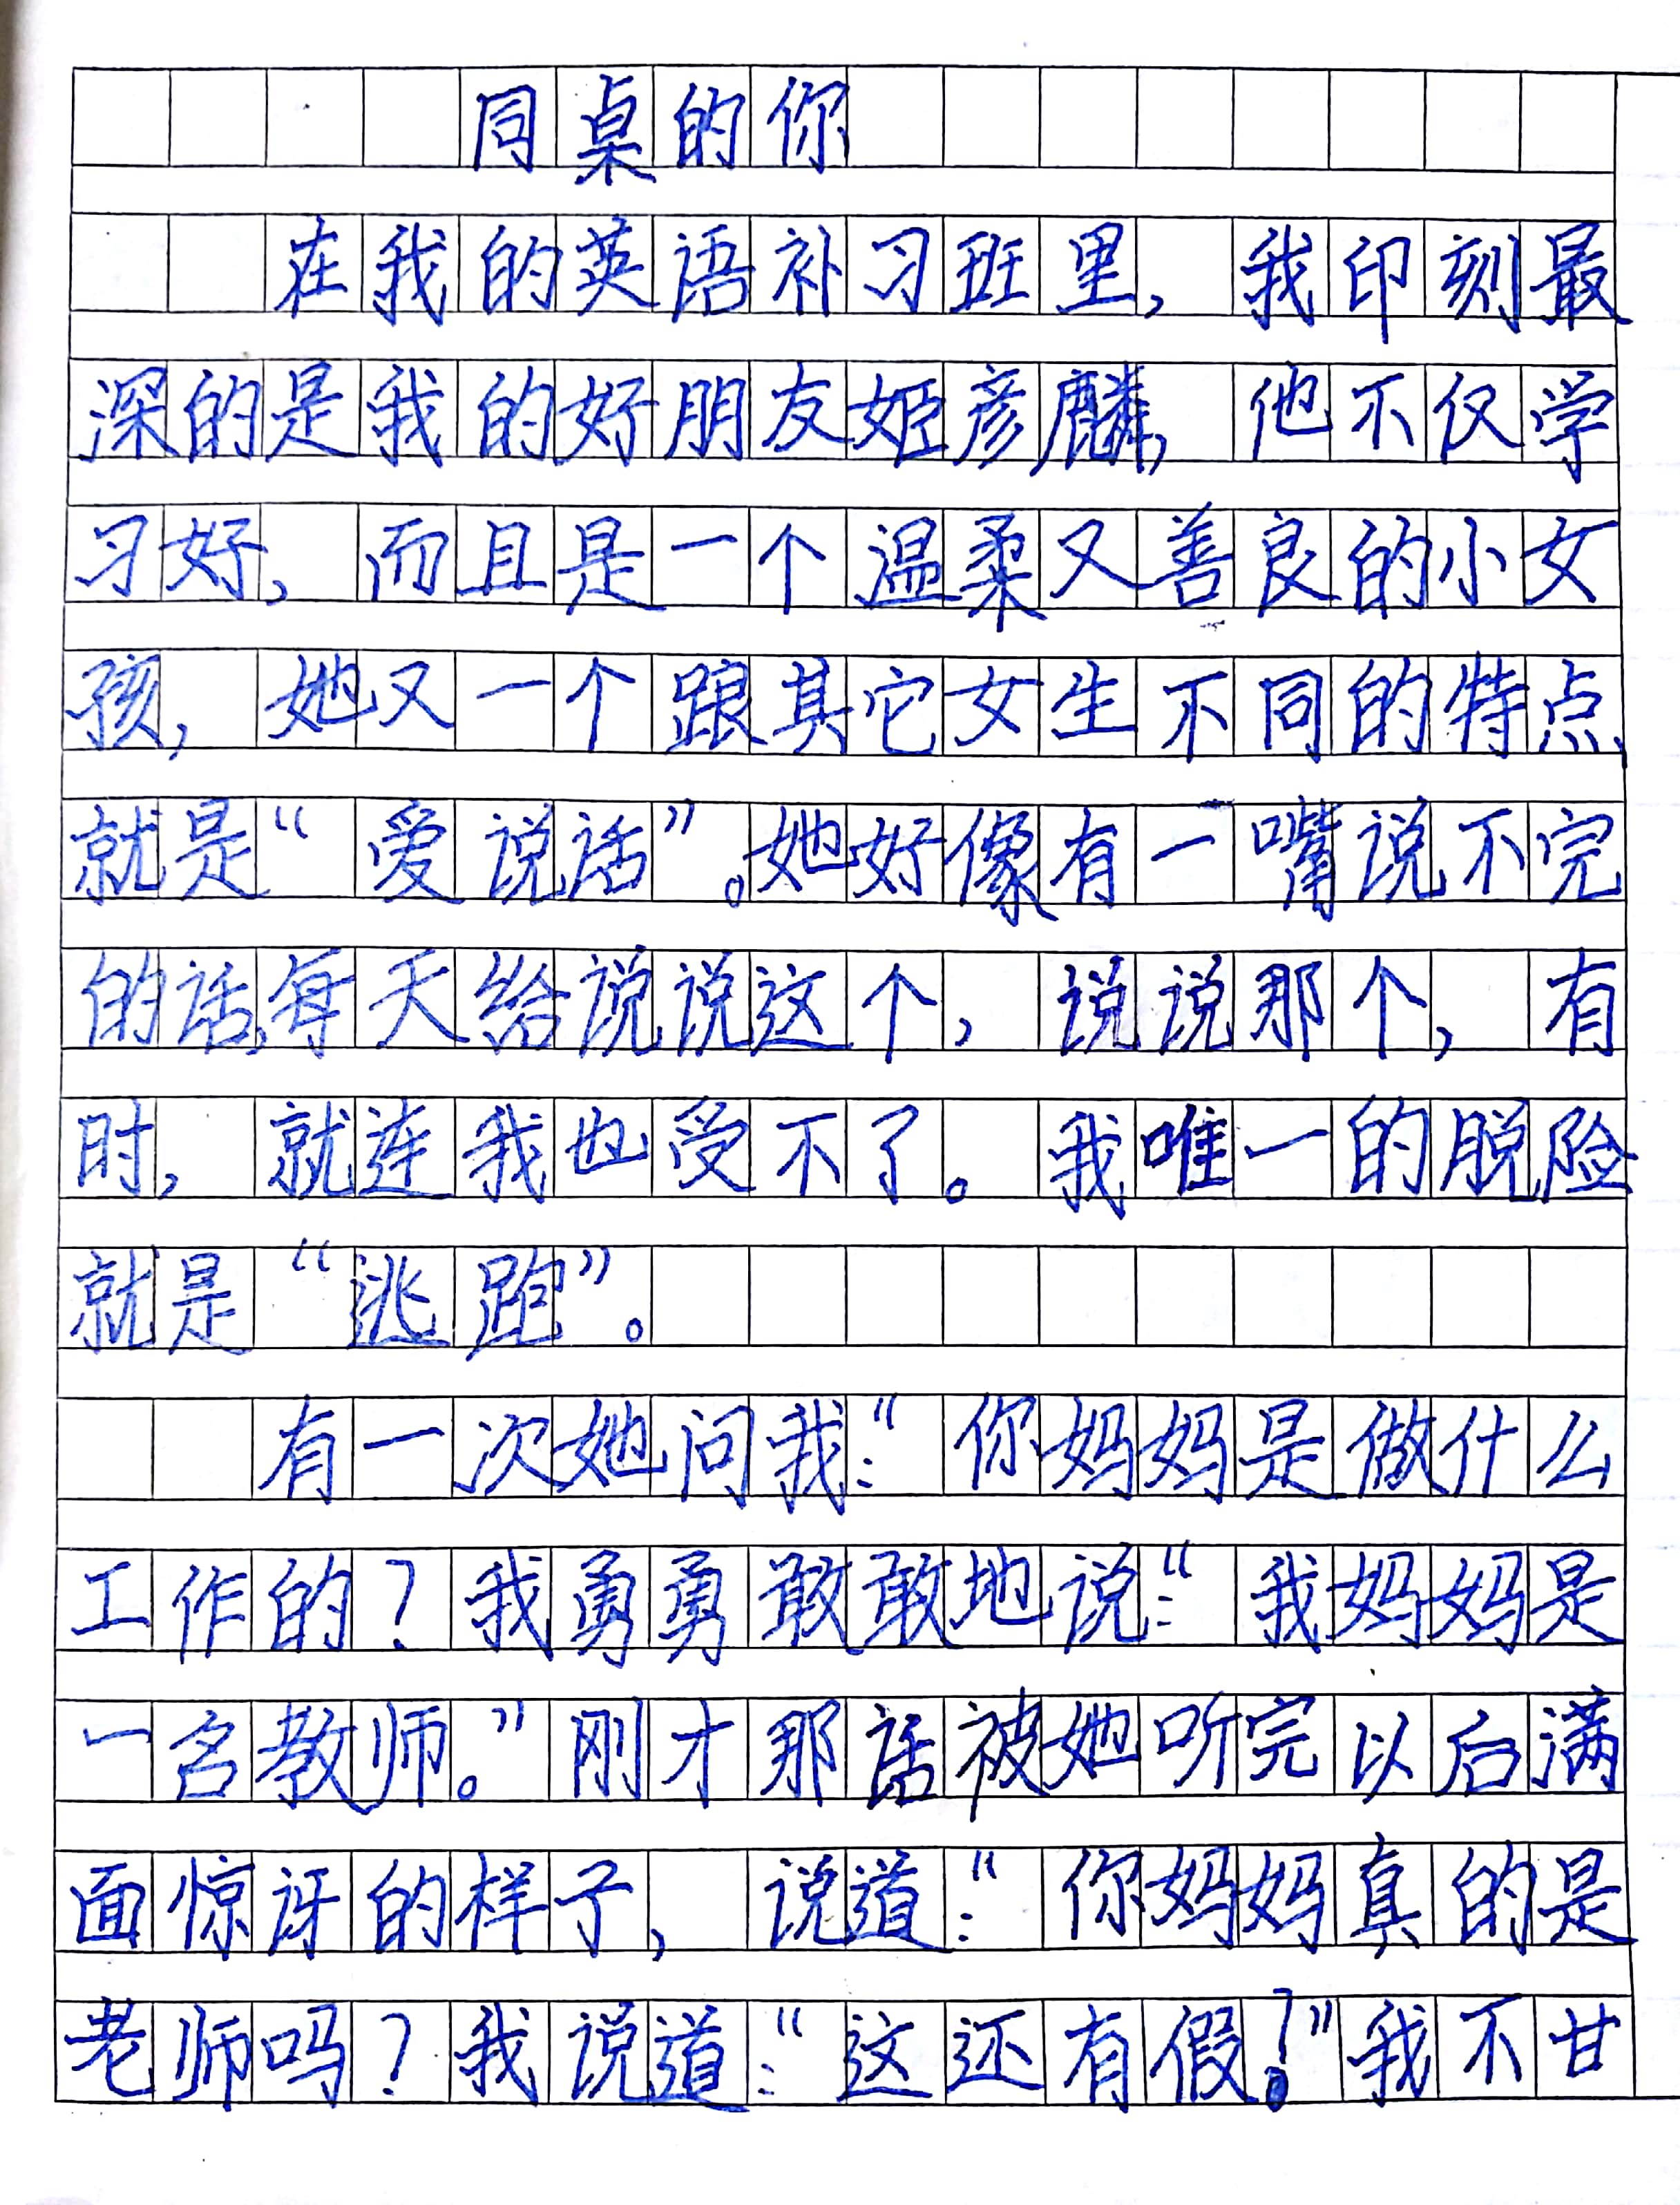 同桌的你
在我的英语补习班里，我印刻最
深的是我的好朋友姬彦麟，他不仅学
习好，而且是一个温柔又善良的小女
孩，她又一个跟其它女生不同的特点
就是“爱说话”。她好像有一嘴说不完
的话，每天给说说这个，说说那个，有
时，就连我也受不了。我唯一的脱险
就是“逃跑”。
有一次她问我：“你妈妈是做什么
工作的？我勇勇敢敢地说：“我妈妈是
一名教师。”刚才那话被她听完以后满
面惊讶的样子，说道：“你妈妈真的是
老师吗？我说道：“这还有假！”我不甘